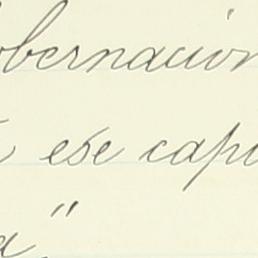 obernación
ese capi
a"